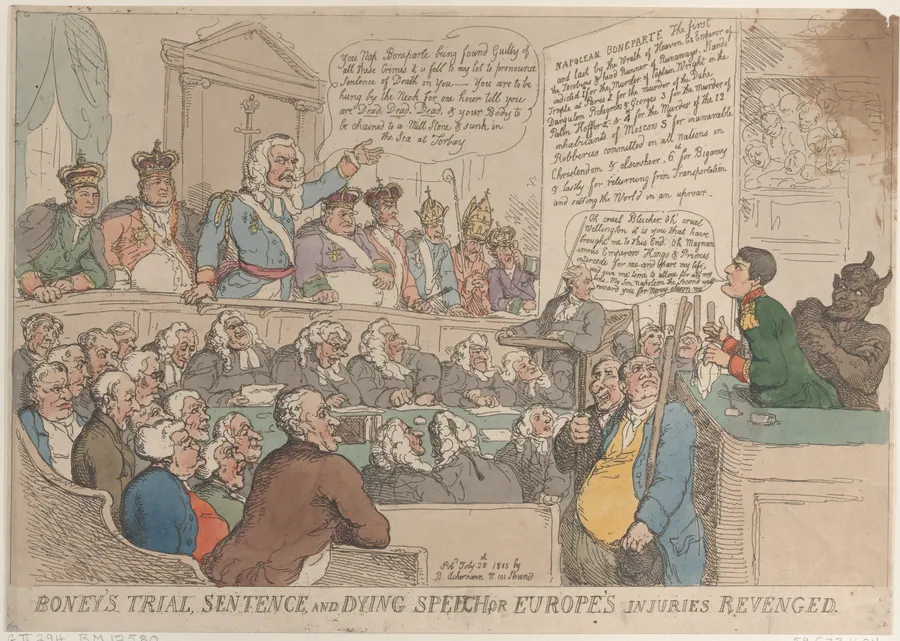 You Nap Boneparte being found Guilty of
all these Crimes it is fell to my lot to pronounce
Sentence of Death on You — You are to be
hung by the Neck for one hour till you
are Dead, Dead, Dead, & your Body to
be chained to a Mill Stone & sunk in
the Sea at Torbay
NAPOLEAN BONEPARTE The first
and last by the Wrath of Heaven Ex Emperor of
the Jacobins & head Runner of Runaways, Stands
indicted 1st for the Murder of Captain Wright in the
Temple at Paris 2 for the murder of the Duke
Dangulen Pichegrew & Georges 3 for the Murder of
Palm Hoffer & & 4 for the Murder of the 12
inhabitants of Moscow 5 for inumerable
Robberies committed on all Nations in
Christendom & elsewhere, 6st for Bigamy
& lastly for returning from Transportation
and setting the World in an uproar.
Oh cruel Blucher, Oh cruel
Wellington it is you that have
brought me to this End. Oh Magnan
imous Emperors Kings & Princes
intercede for me and spare my life,
and give me time to attone for all my
Sins, My Son Napoleon the Second will
reward you for Mercy shewn me
Pubd July 28th 1815 by
R. Ackermann No 101 Strand
BONEY'S TRIAL, SENTENCE, AND DYING SPEECH, OR EUROPE'S INJURIES REVENGED.
G II 294 BM 12580